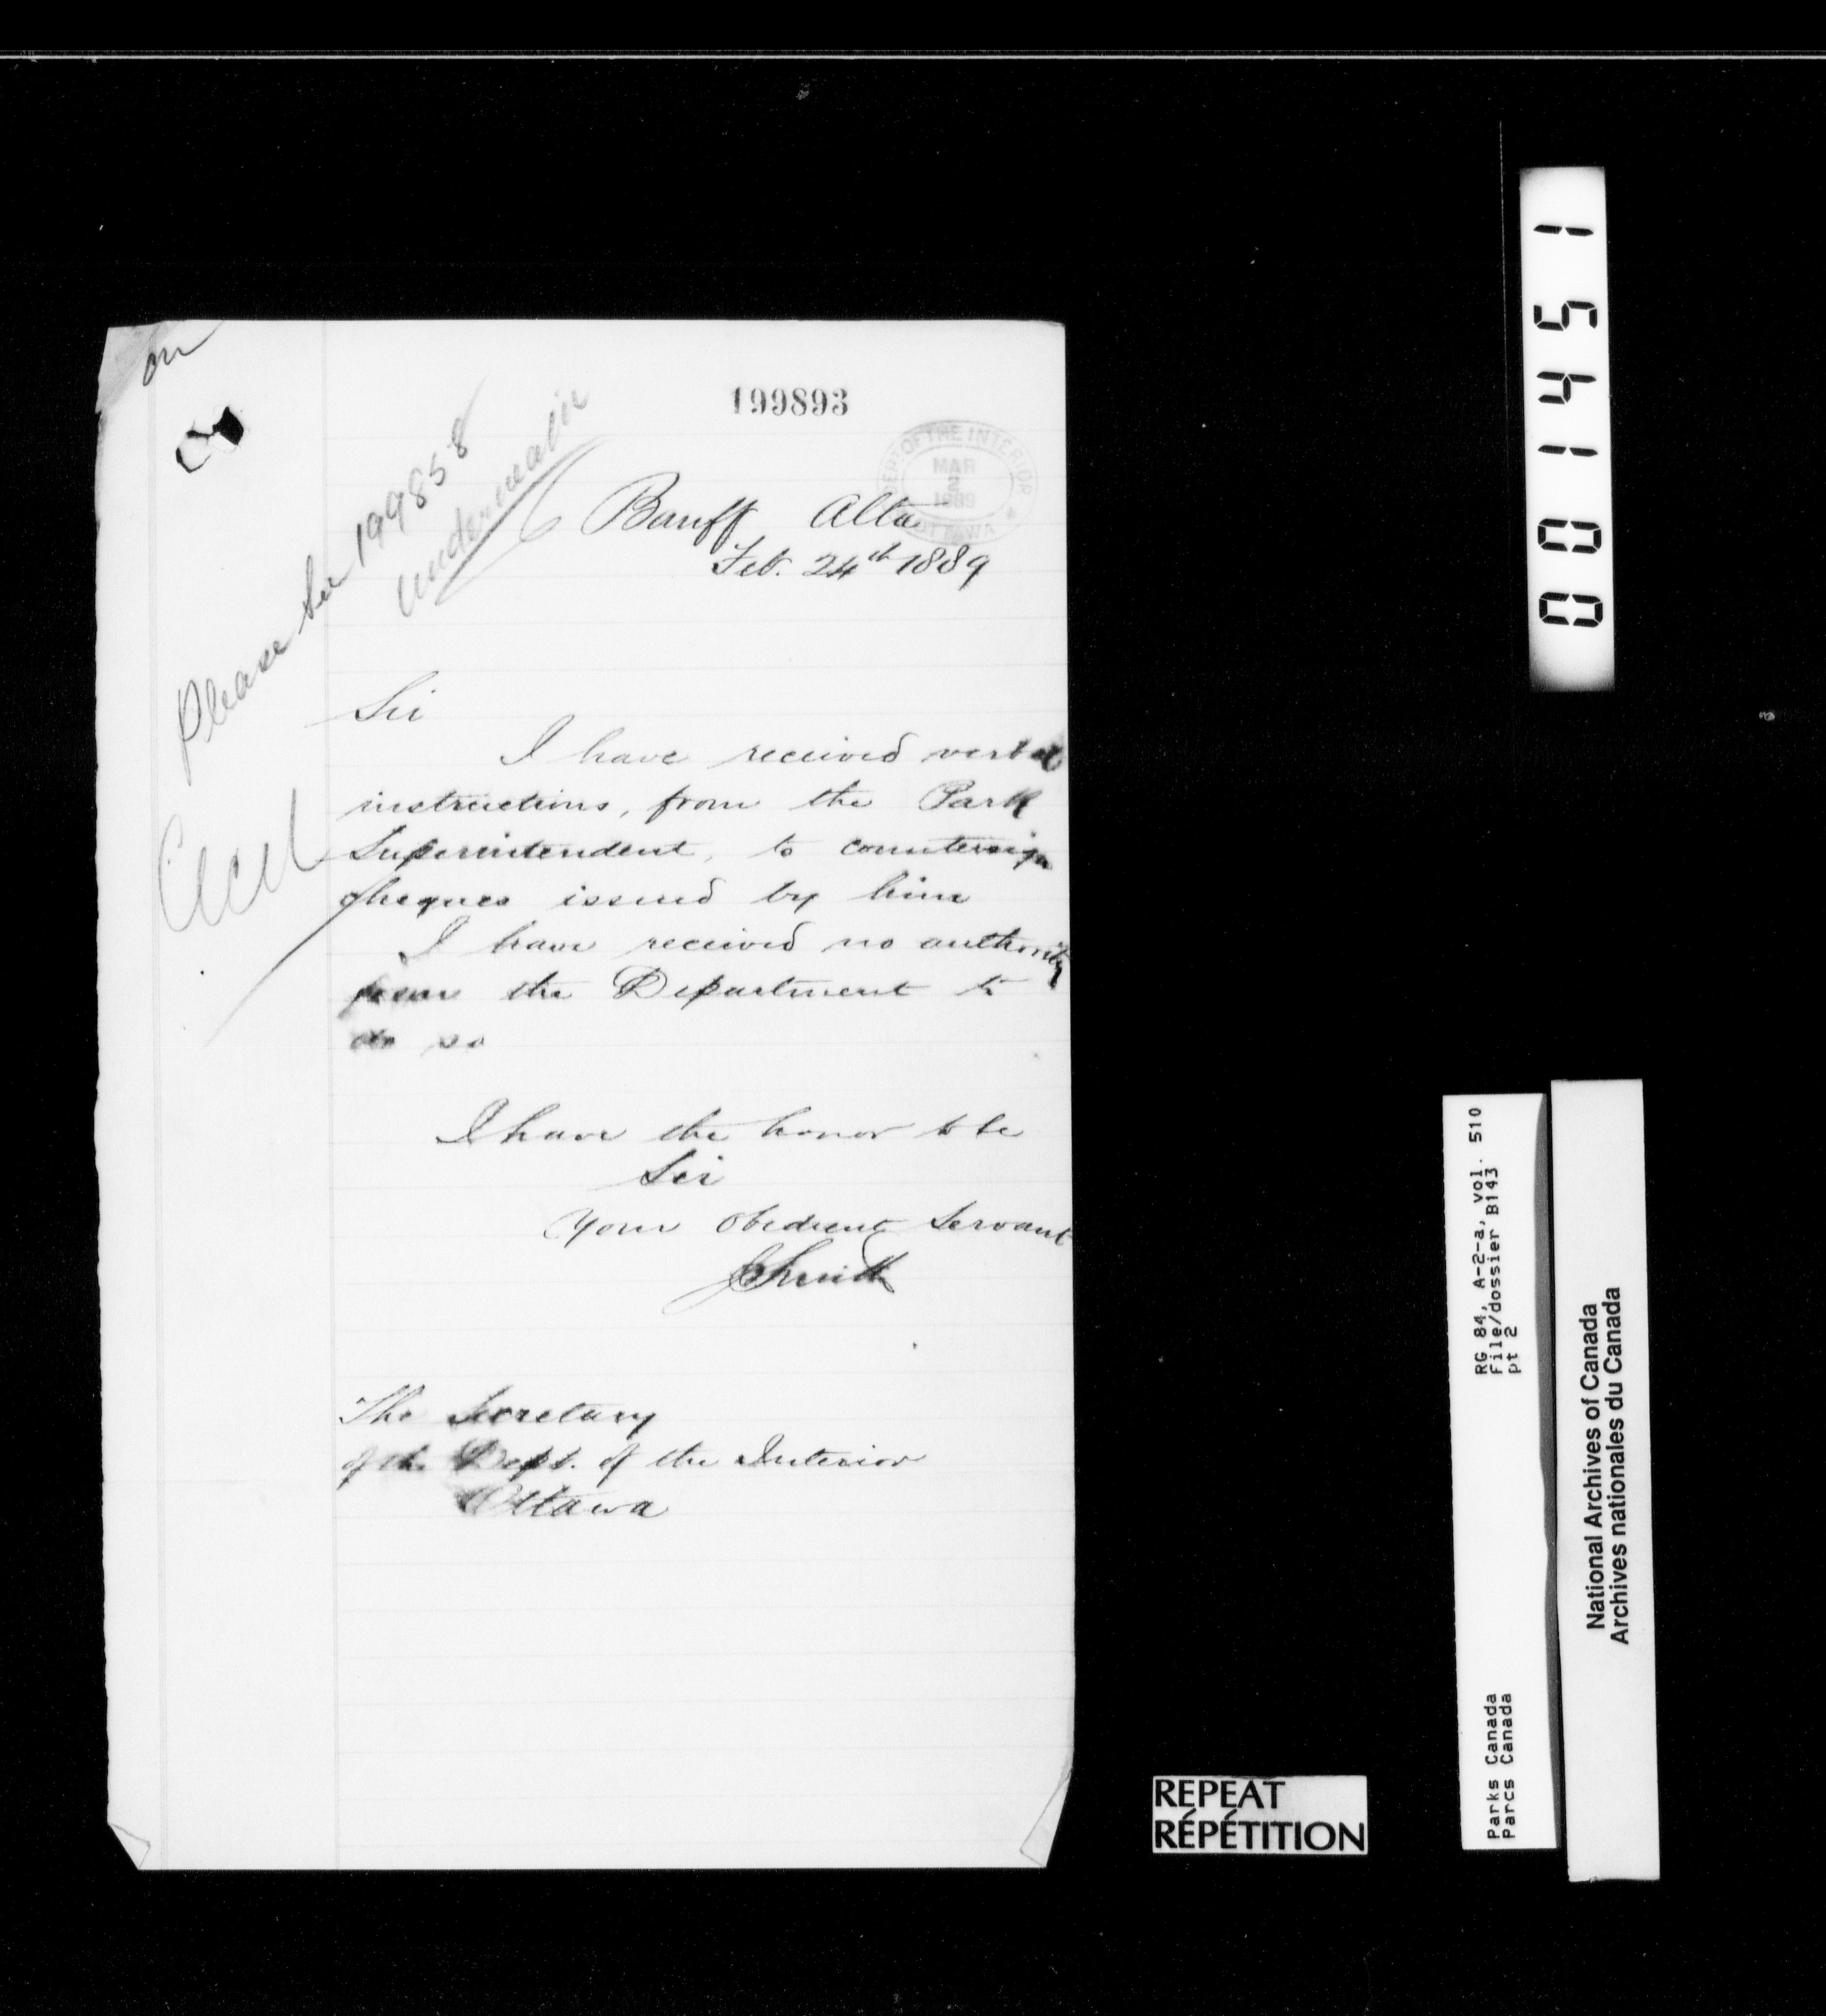 on
199893
DEPT OF THE INTERIOR
MAR
2
1889
OTTAWA
Please see 199858
underneath
Banff Alta
Feb. 24th 1889
Sir
I have received verbal
instructions, from the Park
Superintendent, to countersign
cheques issued by him
I have received no authority
from the Department to
do so
I have the honor to be
Sir
Your Obedient Servant
Smith
The Secretary
of the Dept. of the Interior
Ottawa
001451
RG 84, A-2-a, vol. 510
File/dossier B143
pt 2
Parks Canada
Parcs Canada
National Archives of Canada
Archives nationales du Canada
REPEAT
RÉPÉTITION